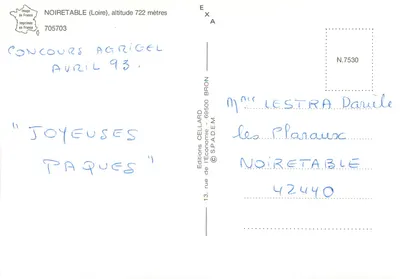 Image de France
Imprimée en France
NOIRETABLE (Loire), altitude 722 mètres
705703
CONCOURS AGRICOL
AVRIL 93.
"JOYEUSES
PAQUES"
EXA
Editions CELLARD
13, rue de l'Economie - 69500 BRON
© S.P.A.D.E.M.
N.7530
Mme LESTRA Danièle
les Plaraux
NOIRETABLE
42440